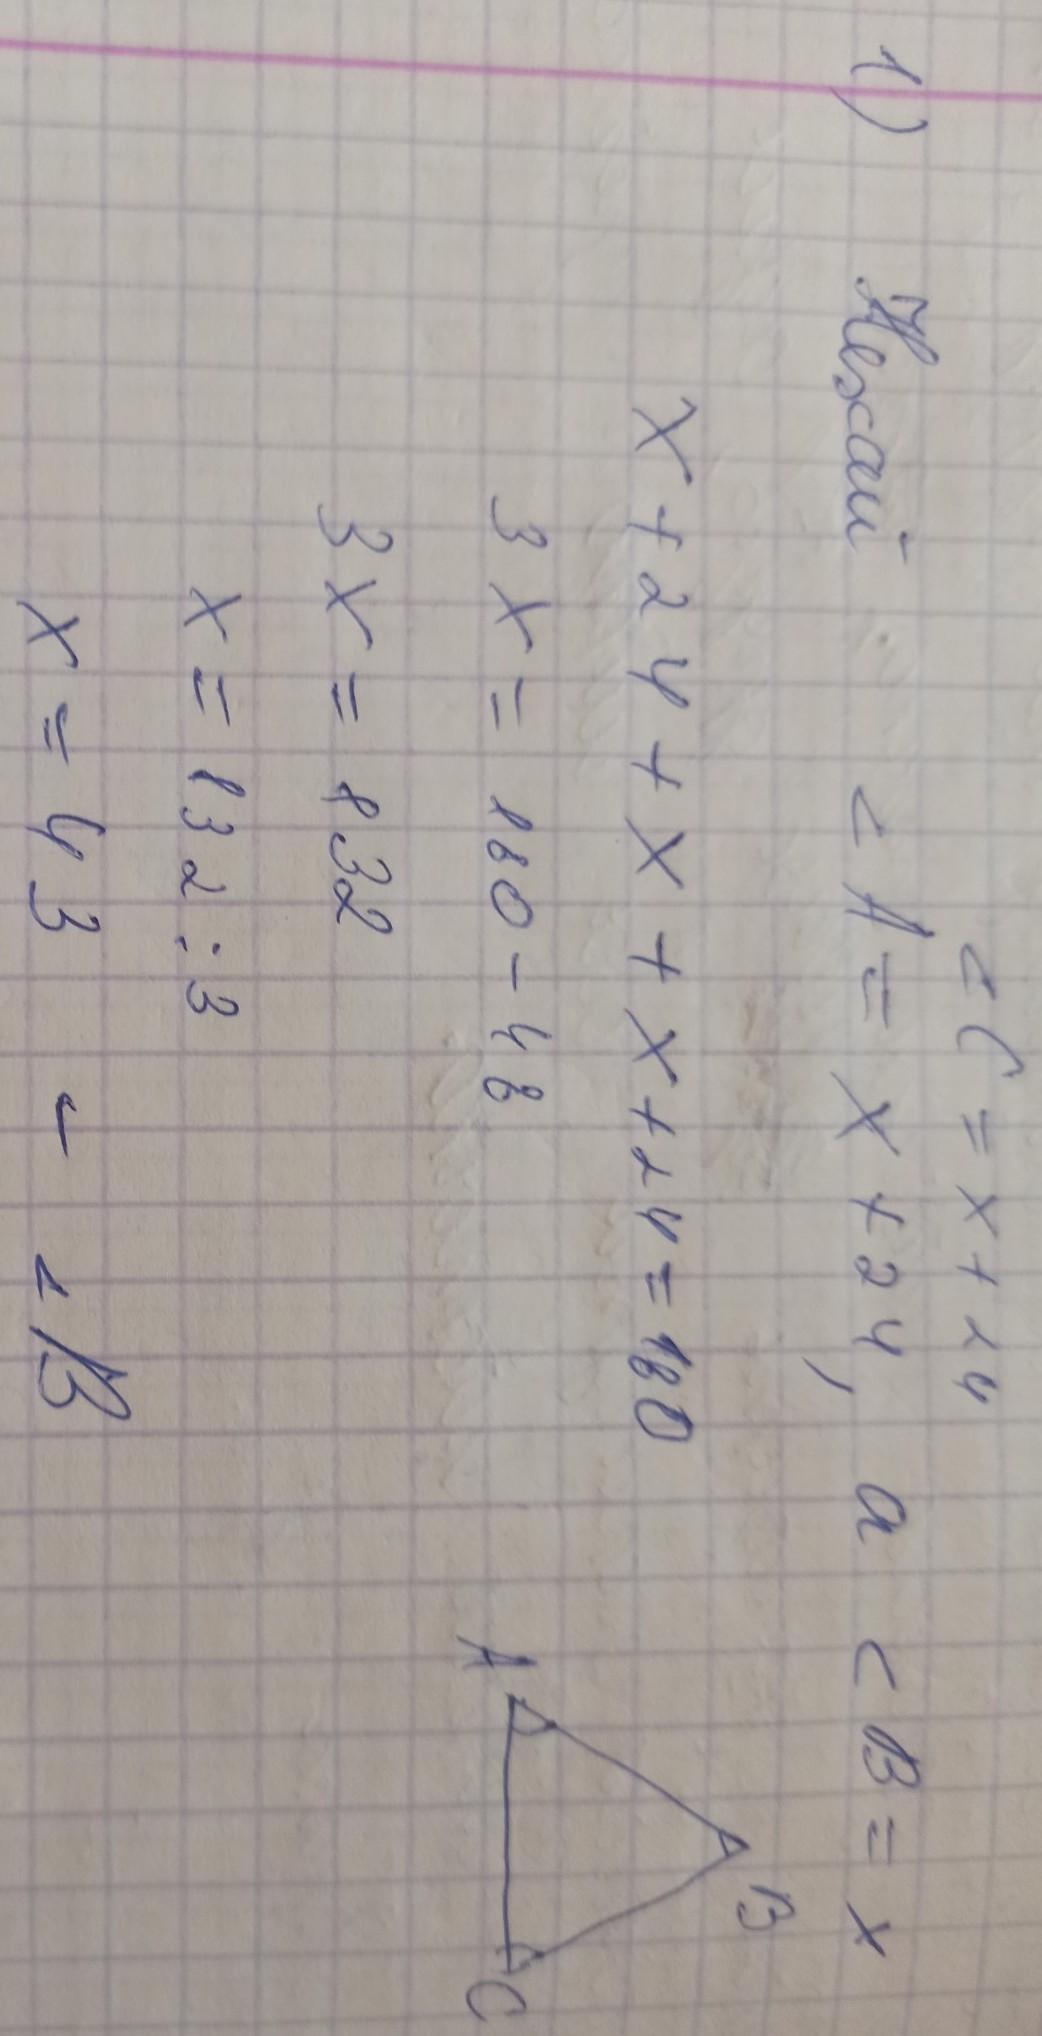 <C = x + 24
1) Нехай <A = x + 24, а <B = x
x + 24 + x + x + 24 = 180
3x = 180 - 48
3x = 132
x = 132 : 3
x = 43 - <B
B
A
C